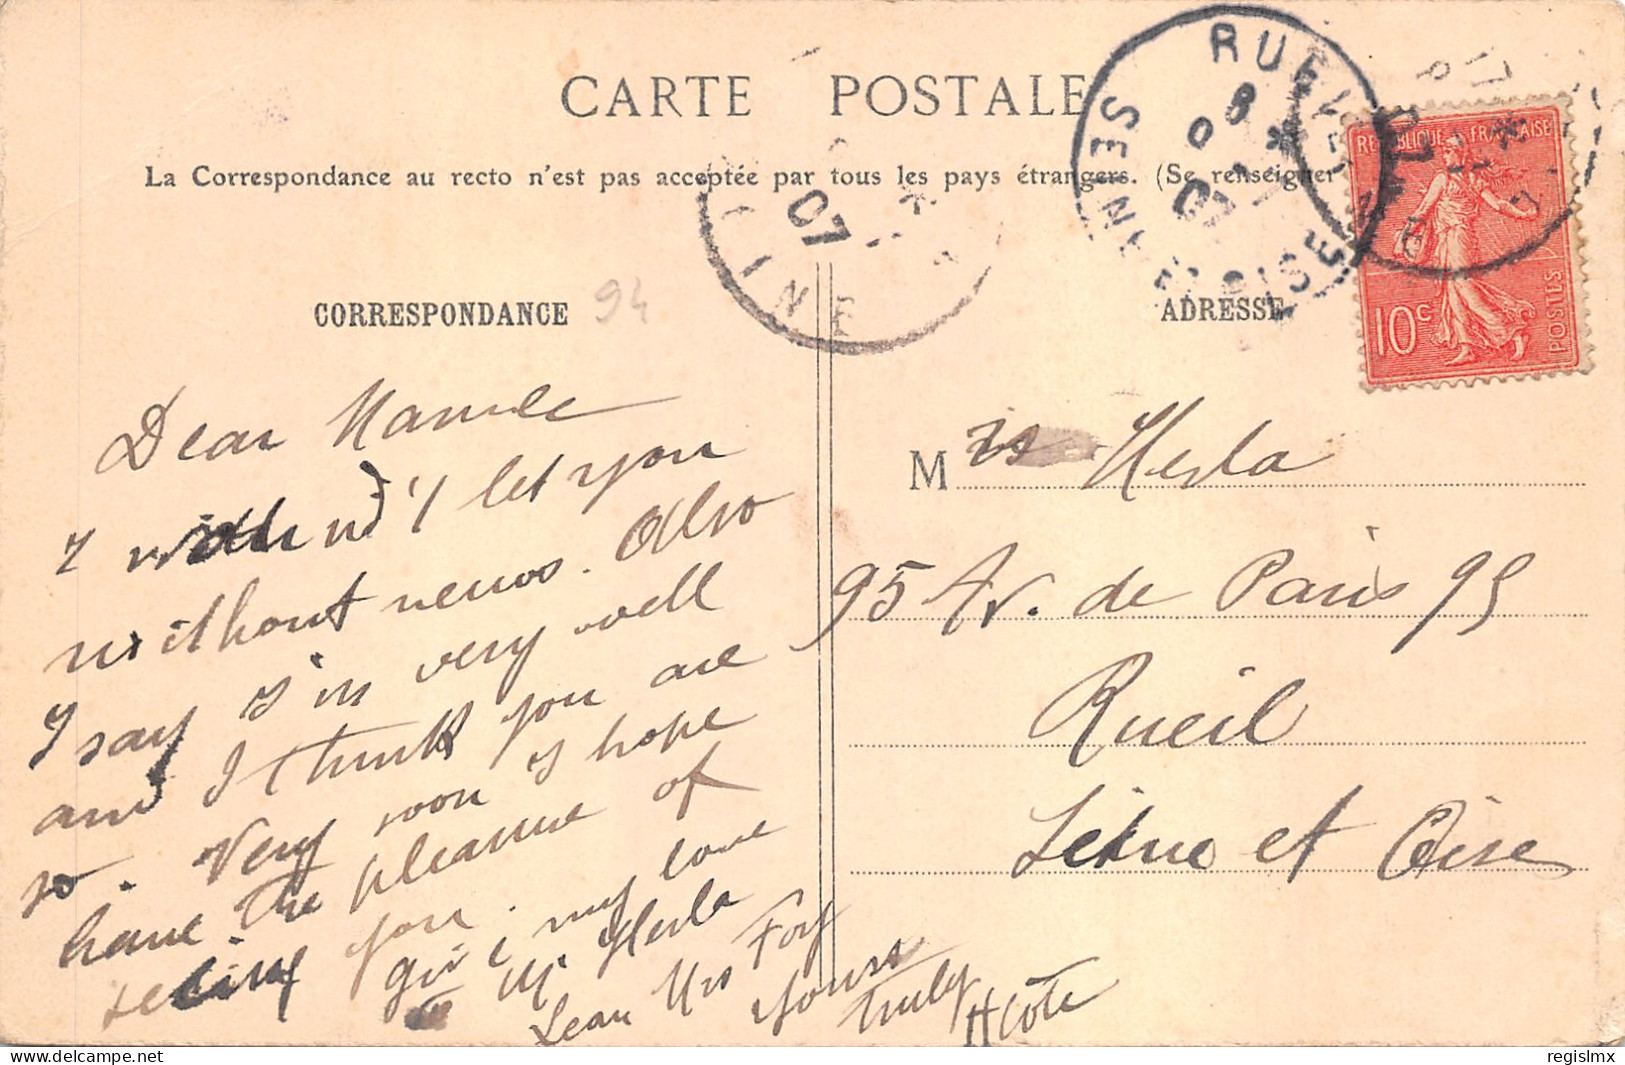 CARTE POSTALE
La Correspondance au recto n'est pas acceptée par tous les pays étrangers. (Se renseigner
CORRESPONDANCE
94
Dear
I let you
without news. Also
I say I'm very well
and I think you are
so. Very soon I hope
have the pleasure of
seeing you. give my love
to Herla
Mrs
yours
truly
H Côte
ADRESSE
Mis Herla
95 Av. de Paris 95
Rueil
Seine et Oise
RUEIL
SEINE ET OISE
8
07
07
INE
REPUBLIQUE FRANÇAISE
10c
POSTES
regislmx